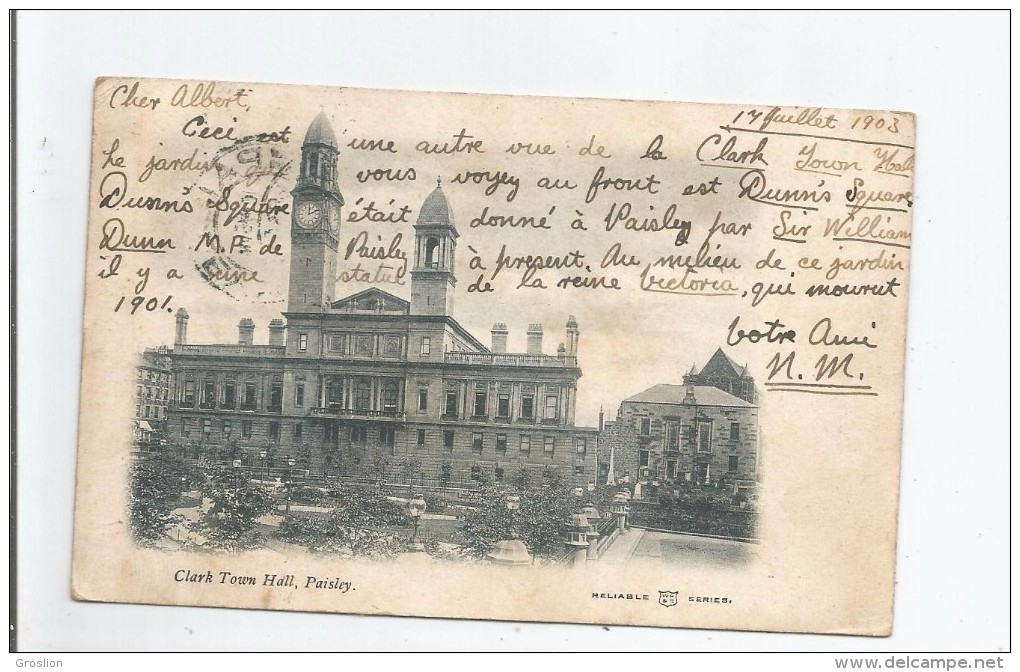 Cher Albert,
17 Juillet 1903
Ceci est une autre vue de la Clark Town Hall
Le jardin que vous voyez au front est Dunn's Square
Dunn's Square était donné à Paisley par Sir William
Dunn M.P. de Paisley à présent. Au milieu de ce jardin
il y a une statue de la reine Victoria, qui mourut
1901.
Votre Ami
N. M.
Clark Town Hall, Paisley.
RELIABLE WR & S SERIES.
http://www.delcampe.net
Groslion